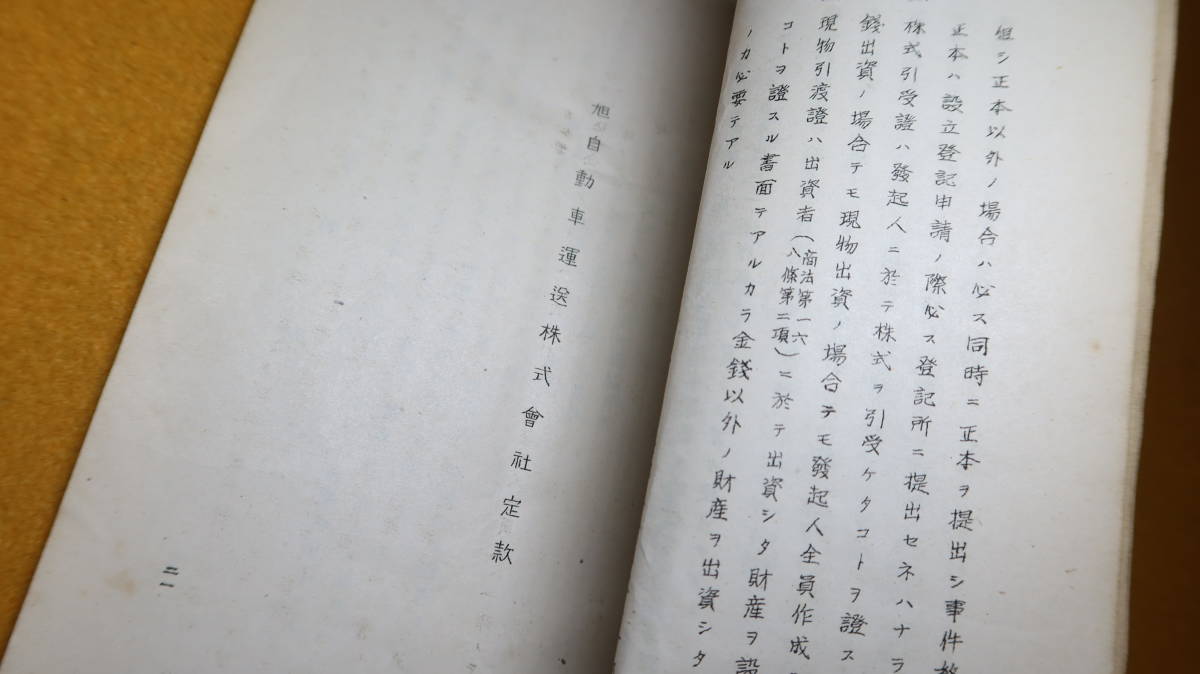 但シ正本以外ノ場合ハ必ス同時ニ正本ヲ提出シ事件
正本ハ設立登記申請ノ際必ス登記所ニ提出セネハナラ
株式引受證ハ發起人ニ於テ株式ヲ引受ケタコトヲ證ス
錢出資ノ場合テモ現物出資ノ場合テモ發起人全員作成
現物引渡證ハ出資者(商法第一六八條第二項)ニ於テ出資シタ財産ヲ
コトヲ證スル書面テアルカラ金錢以外ノ財産ヲ出資シタ
ノカ必要テアル
旭自動車運送株式會社定款
二一